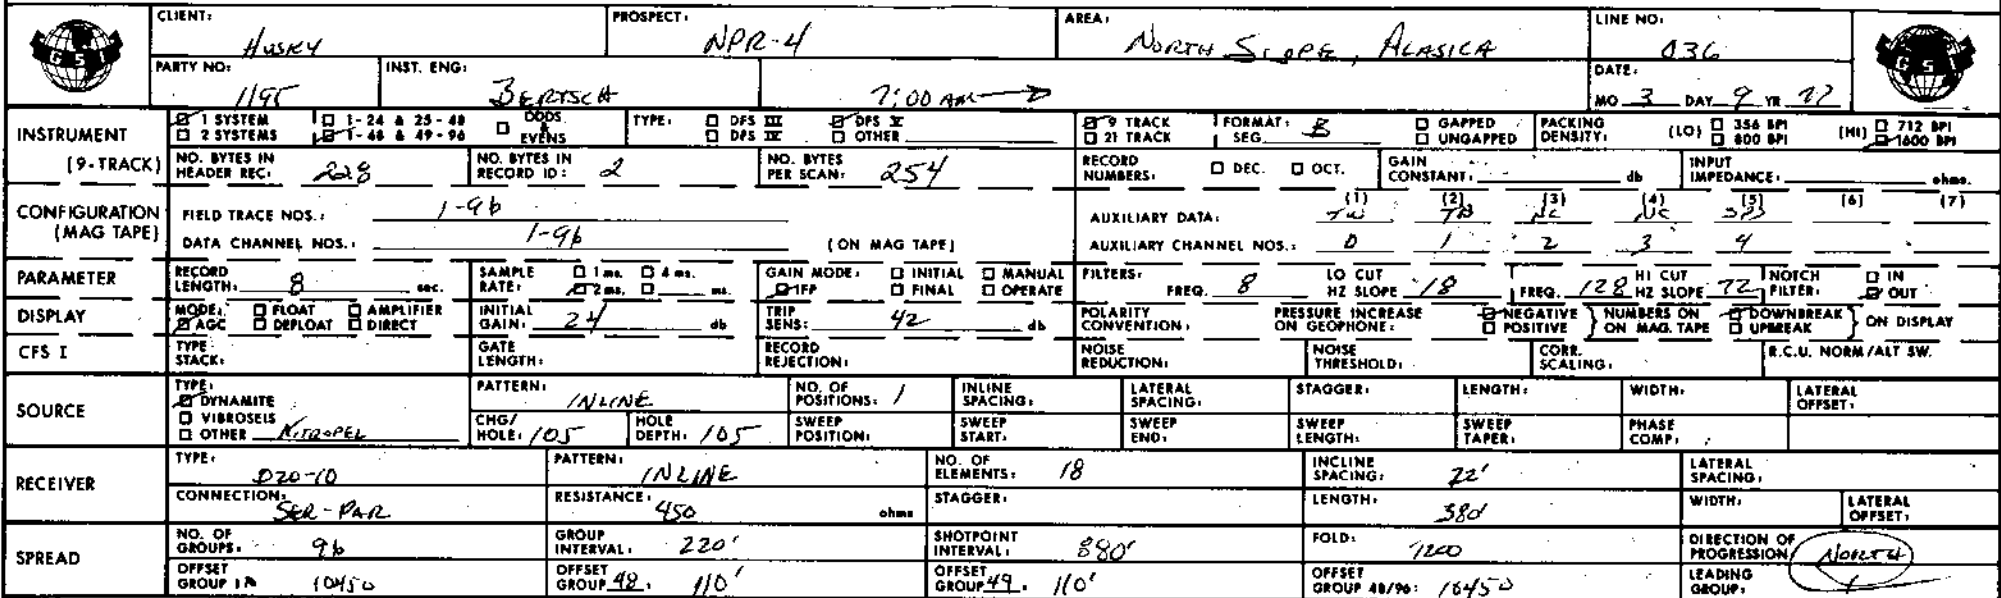 CLIENT: Husky PROSPECT: NPR-4 AREA: North Slope, Alaska LINE NO: 036
GSI GSI
PARTY NO: 1195 INST. ENG: Bertsch 7:00 AM → DATE: MO 3 DAY 9 YR 77
INSTRUMENT (9-TRACK) ☑ 1 SYSTEM ☐ 1-24 & 25-48 ☐ ODDS & EVENS TYPE: ☐ DFS III ☑ DFS V ☑ 9 TRACK FORMAT: SEG B ☐ GAPPED PACKING DENSITY: (LO) ☐ 356 BPI (HI) ☐ 712 BPI
☐ 2 SYSTEMS ☑ 1-48 & 49-96 ☐ DFS IV ☐ OTHER ☐ 21 TRACK ☐ UNGAPPED ☐ 800 BPI ☑ 1600 BPI
NO. BYTES IN HEADER REC: 228 NO. BYTES IN RECORD ID: 2 NO. BYTES PER SCAN: 254 RECORD NUMBERS: ☐ DEC. ☐ OCT. GAIN CONSTANT: db INPUT IMPEDANCE: ohms.
CONFIGURATION (MAG TAPE) FIELD TRACE NOS.: 1-96 AUXILIARY DATA: (1) TW (2) TB (3) UC (4) UC (5) SPS (6) (7)
DATA CHANNEL NOS.: 1-96 (ON MAG TAPE) AUXILIARY CHANNEL NOS.: 0 1 2 3 4
PARAMETER RECORD LENGTH: 8 sec. SAMPLE RATE: ☐ 1 ms. ☐ 4 ms. ☑ 2 ms. ☐ ms. GAIN MODE: ☐ INITIAL ☐ MANUAL ☑ IFP ☐ FINAL ☐ OPERATE FILTERS: FREQ. 8 LO CUT HZ SLOPE 18 FREQ. 128 HI CUT HZ SLOPE 72 NOTCH FILTER: ☐ IN ☑ OUT
DISPLAY MODE: ☐ FLOAT ☐ AMPLIFIER ☑ AGC ☐ DEFLOAT ☐ DIRECT INITIAL GAIN: 24 db TRIP SENS: 42 db POLARITY CONVENTION: PRESSURE INCREASE ON GEOPHONE: ☑ NEGATIVE ☐ POSITIVE } NUMBERS ON ON MAG. TAPE ☑ DOWNBREAK ☐ UPBREAK } ON DISPLAY
CFS I TYPE STACK: GATE LENGTH: RECORD REJECTION: NOISE REDUCTION: NOISE THRESHOLD: CORR. SCALING: R.C.U. NORM/ALT SW.
SOURCE TYPE: ☑ DYNAMITE ☐ VIBROSEIS ☐ OTHER Nitropel PATTERN: INLINE NO. OF POSITIONS: 1 INLINE SPACING: LATERAL SPACING: STAGGER: LENGTH: WIDTH: LATERAL OFFSET:
CHG/HOLE: 105 HOLE DEPTH: 105 SWEEP POSITION: SWEEP START: SWEEP END: SWEEP LENGTH: SWEEP TAPER: PHASE COMP:
RECEIVER TYPE: D20-10 PATTERN: INLINE NO. OF ELEMENTS: 18 INCLINE SPACING: 22' LATERAL SPACING:
CONNECTION: SER-PAR RESISTANCE: 450 ohms STAGGER: LENGTH: 380' WIDTH: LATERAL OFFSET:
SPREAD NO. OF GROUPS: 96 GROUP INTERVAL: 220' SHOTPOINT INTERVAL: 880' FOLD: 1200 DIRECTION OF PROGRESSION: North
OFFSET GROUP 1: 10450 OFFSET GROUP 48: 110' OFFSET GROUP 49: 110' OFFSET GROUP 48/96: 10450 LEADING GROUP: 1